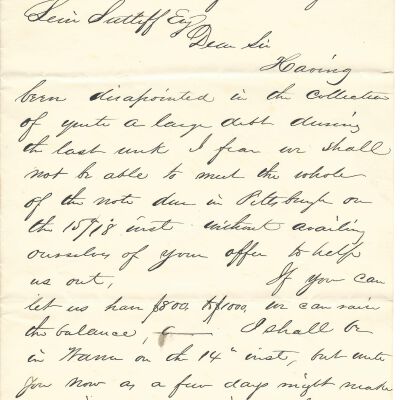 Levi Sutliff Esq
Dear Sir
Having
been disapointed in the collection
of quite a large debt during
the last week I fear we shall
not be able to meet the whole
of the note due in Pittsburgh on
the 15/18 inst without availing
ourselves of your offer to help
us out, If you can
let us have $800, to $1000, we can raise
the balance, I shall be
in Warren on the 14" inst, but write
you now as a few days might make